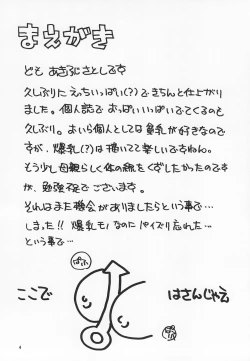 まえがき
ども あきふじさとしです
久しぶりに えっちいっぱい(?)で きちんと仕上がり
ました。個人誌で おっぱいいっぱいでてくるのも
久しぶり。おいら個人としては 貧乳が好きなので
すが、爆乳(?)は 描いてて楽しいですねん。
もう少し 母親らしく体の線をくずしたかったのです
が、勉強不足で ございます。
それはまた機会がありましたらという事で…
しまった!! 爆乳モノなのに パイズリ忘れた…
という事で…
ぱふ
ここで
はさんじゃえ
ぱふ
4